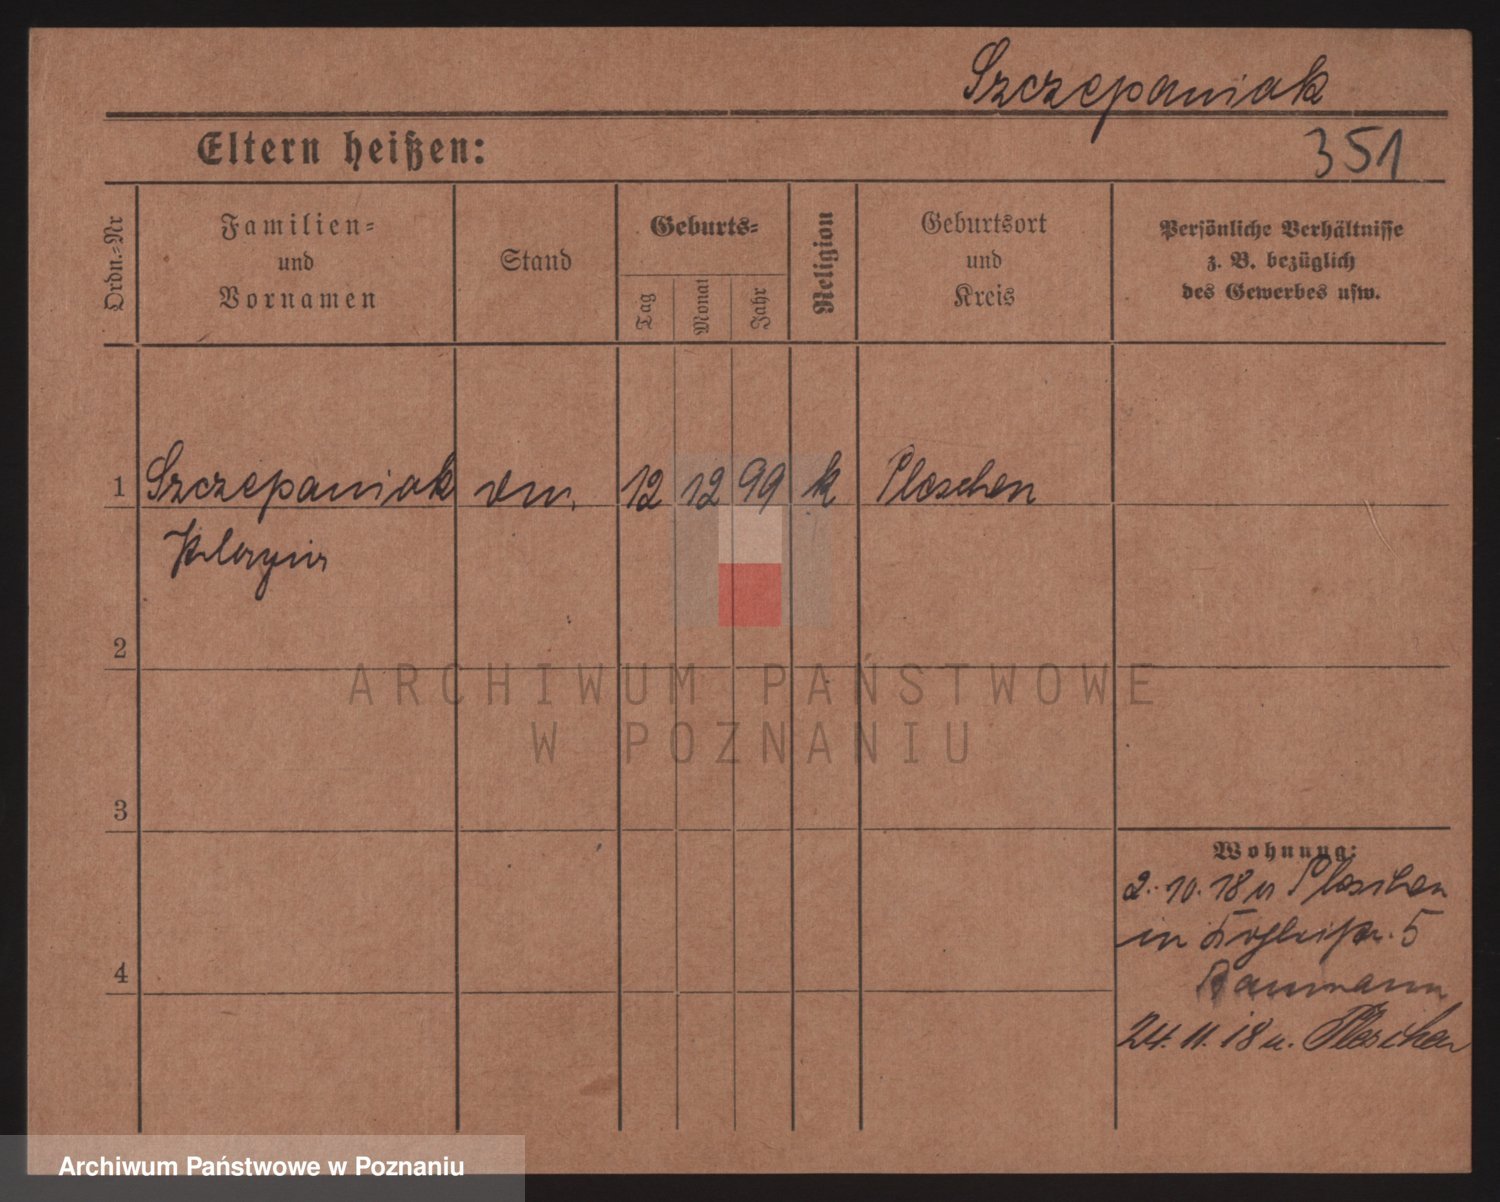 Szczepaniak
Eltern heißen:
351
Ordn.=Nr
Familien=
und
Vornamen
Stand
Geburts=
Tag
Monat
Jahr
Religion
Geburtsort
und
Kreis
Persönliche Verhältnisse
z. B. bezüglich
des Gewerbes usw.
1 Szczepaniak 12 12 99 k Pleschen
2
3
4
Wohnung:
2. 10. 18 v Pleschen
in 5
Baumann
24. 11. 18 n. Pleschen
ARCHIWUM PAŃSTWOWE
W POZNANIU
Archiwum Państwowe w Poznaniu